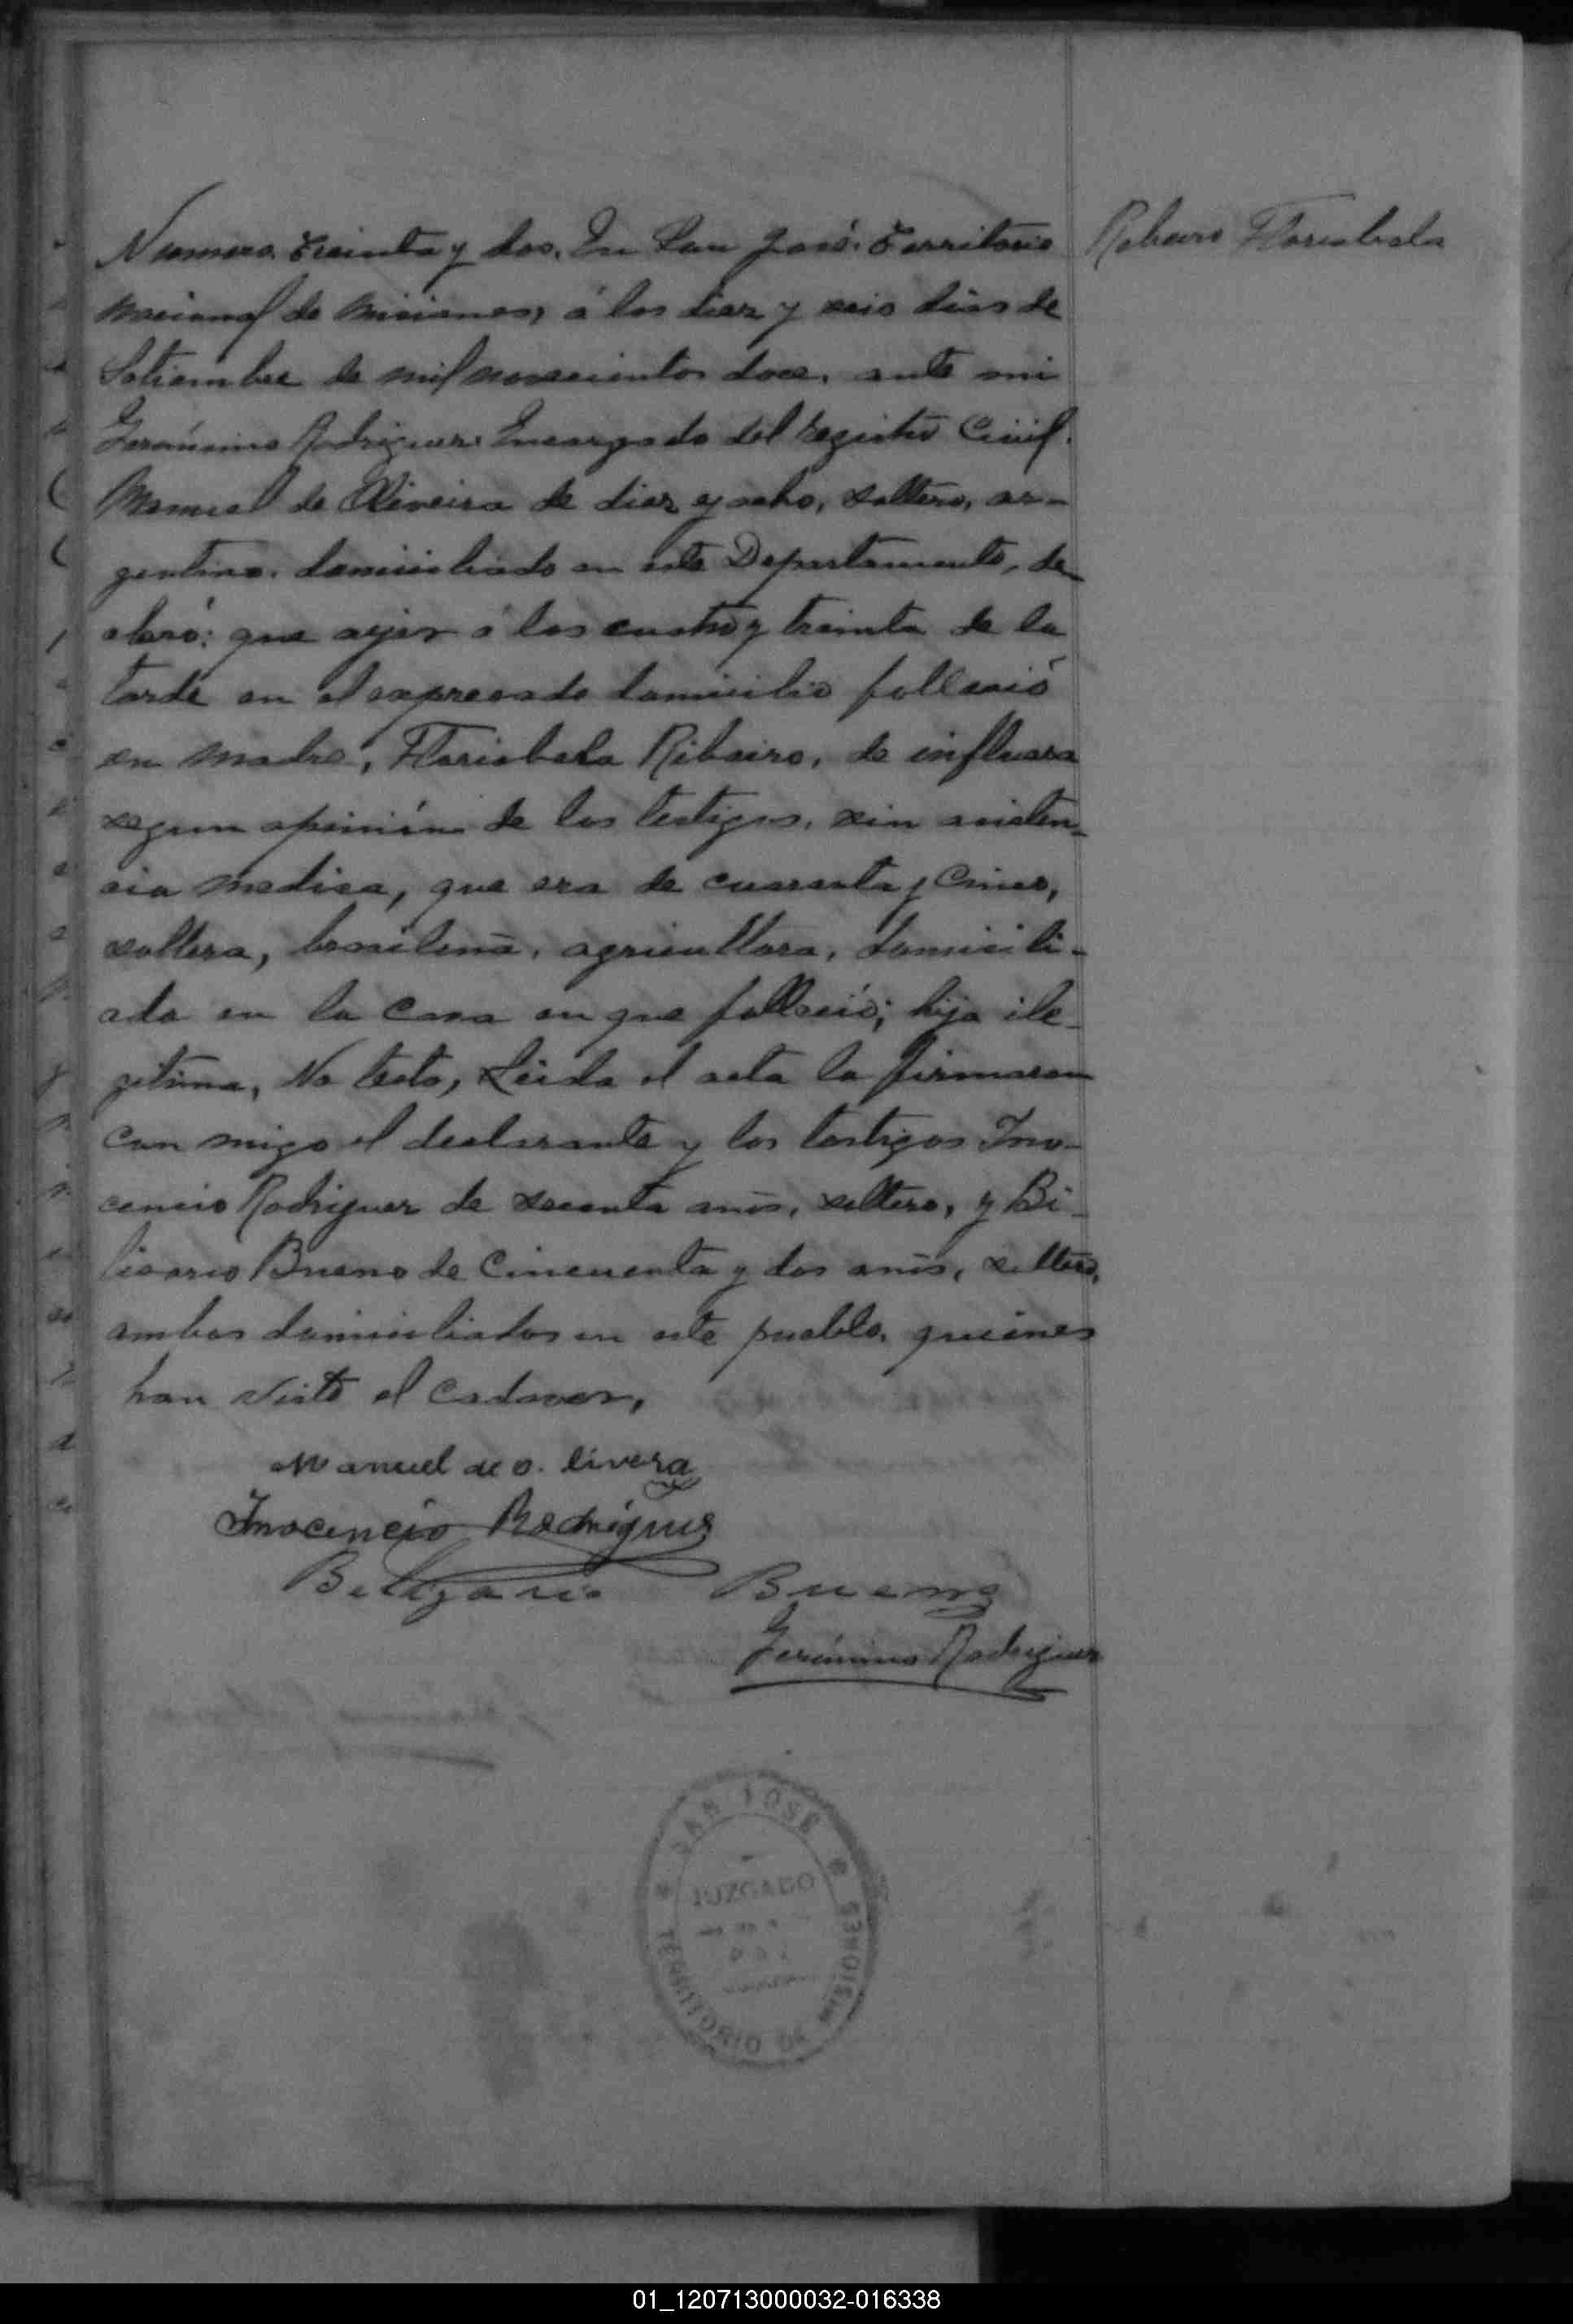 Numero treinta y dos. En San José. Territorio
Ribeiro Florisbela
nacional de Misiones, á los diez y seis dias de
Setiembre de mil novecientos doce, ante mi
Gerónimo Rodriguez Encargado del Registro Civil.
Manuel de Oliveira de diez y ocho, soltero, ar-
gentino. domiciliado en este Departamento, de
claró: que ayer á las cuatro y treinta de la
tarde en el expresado domicilio falleció
su madre, Florisbela Ribeiro, de influenza
segun opinión de los testigos, sin asisten-
cia medica, que era de cuarenta y Cinco,
soltera, brasileña, agricultora, domicili-
ada en la Casa en que falleció; hija ile-
gitima, No testo, Leida el acta la firmaron
con migo el declarante y los testigos Ino-
cencio Rodriguez de sesenta años, soltero, y Be-
lisario Bueno de Cincuenta y dos años, soltero,
ambos domiciliados en este pueblo, quienes
han visto el Cadaver,
Manuel de o. livera
Inocencio Rodrigues
Beligario Bueno
Gerónimo Rodriguez
SAN JOSÉ
JUZGADO
TERRITORIO DE MISIONES
01_120713000032-016338